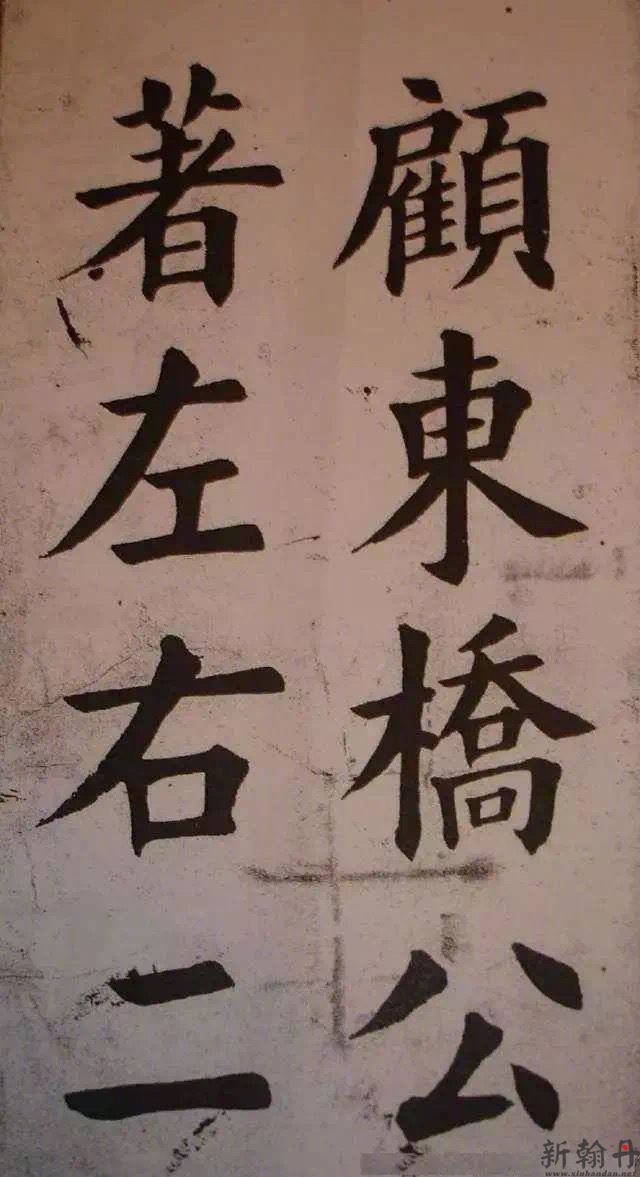 顧東橋公
著左右二
新翰丹
www.xinhandan.net